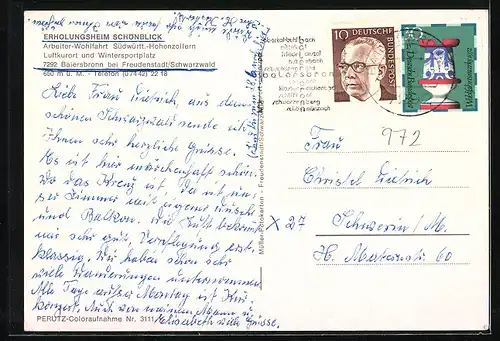 ERHOLUNGSHEIM SCHÖNBLICK
Arbeiter-Wohlfahrt Südwürtt.-Hohenzollern
Luftkurort und Wintersportplatz
7292 Baiersbronn bei Freudenstadt/Schwarzwald
600 m ü. M. - Telefon (07442) 22 18
Liebe Frau Dietrich, aus dem
schönen Schwarzwald sende ich
Ihnen sehr herzliche Grüsse.
Es ist hier märchenhaft schön.
Wo das Kreuz ist, da ist un-
ser Zimmer mit eigener Dusche
und Balkon. Die Luft bekommt
mir sehr gut. Verpflegung erst-
klassig. Wir haben schon sehr
viele Wanderungen unternommen.
Alle Tage außer Montag ist Kur-
konzert. Auch von meinem Mann u.
Elisabeth viele Grüsse.
PERUTZ-Coloraufnahme Nr. 3111
Müller-Postkarten - Freudenstadt/Schwarzwald
10 DEUTSCHE BUNDESPOST
baiersbronn
schwarzenberg
972
Frau
Christel Dietrich
X 27 Schwerin/M.
H. Maternstr 60